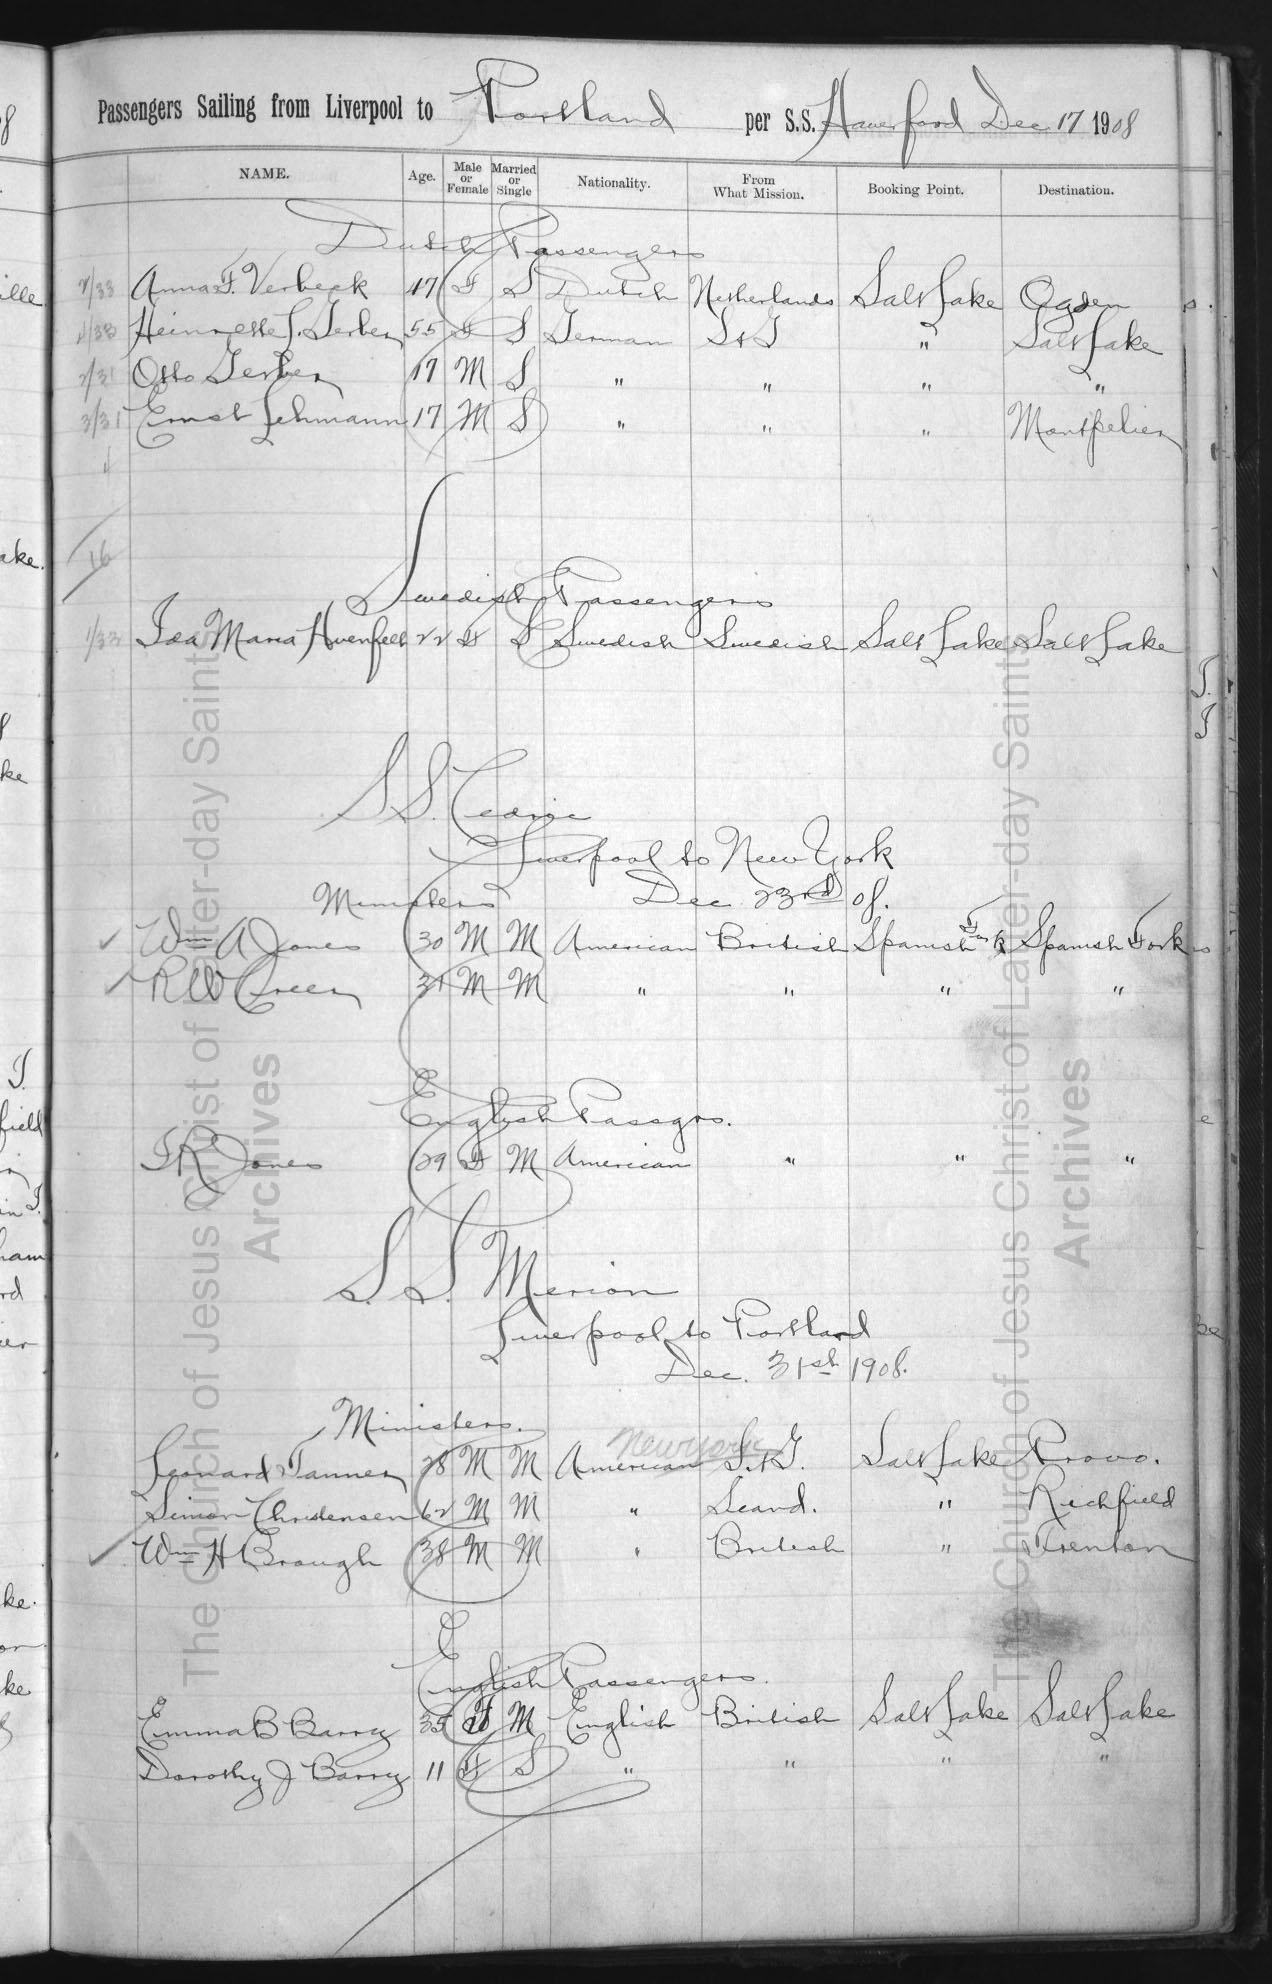 Passengers Sailing from Liverpool to Portland per S.S. Haverford Dec 17 1908
NAME. Age. Male or Female Married or Single Nationality. From What Mission. Booking Point. Destination.
Dutch Passengers
Anna F. Verbeek 47 F S Dutch Netherlands Salt Lake Ogden
55 F S German S & G " Salt Lake
Otto Gerber 19 M S " " " "
3/31 Ernst Lehmann 17 M S " " " Montpelier
4
16
Swedish Passengers
Ida Maria 22 F S Swedish Swedish Salt Lake Salt Lake
S.S. Cedric
Liverpool to New York
Ministers Dec 23rd 08.
Wm A Jones 30 M M American British Spanish Fork Spanish Fork
R W Creer 31 M M " " " "
English Passgrs.
Jones 29 F M American " " "
S.S. Merion
Liverpool to Portland
Dec. 31st 1908.
Ministers.
New York
Leonard Tanner 28 M M American S. & G. Salt Lake Provo.
Simon Christensen 62 M M " Scand. " Richfield
Wm H Brough 38 M M " British " Trenton
English Passengers.
Emma B Barry 35 F M English British Salt Lake Salt Lake
Dorothy J Barry 11 F S " " " "
The Church of Jesus Christ of Latter-day Saints
Archives
The Church of Jesus Christ of Latter-day Saints
Archives